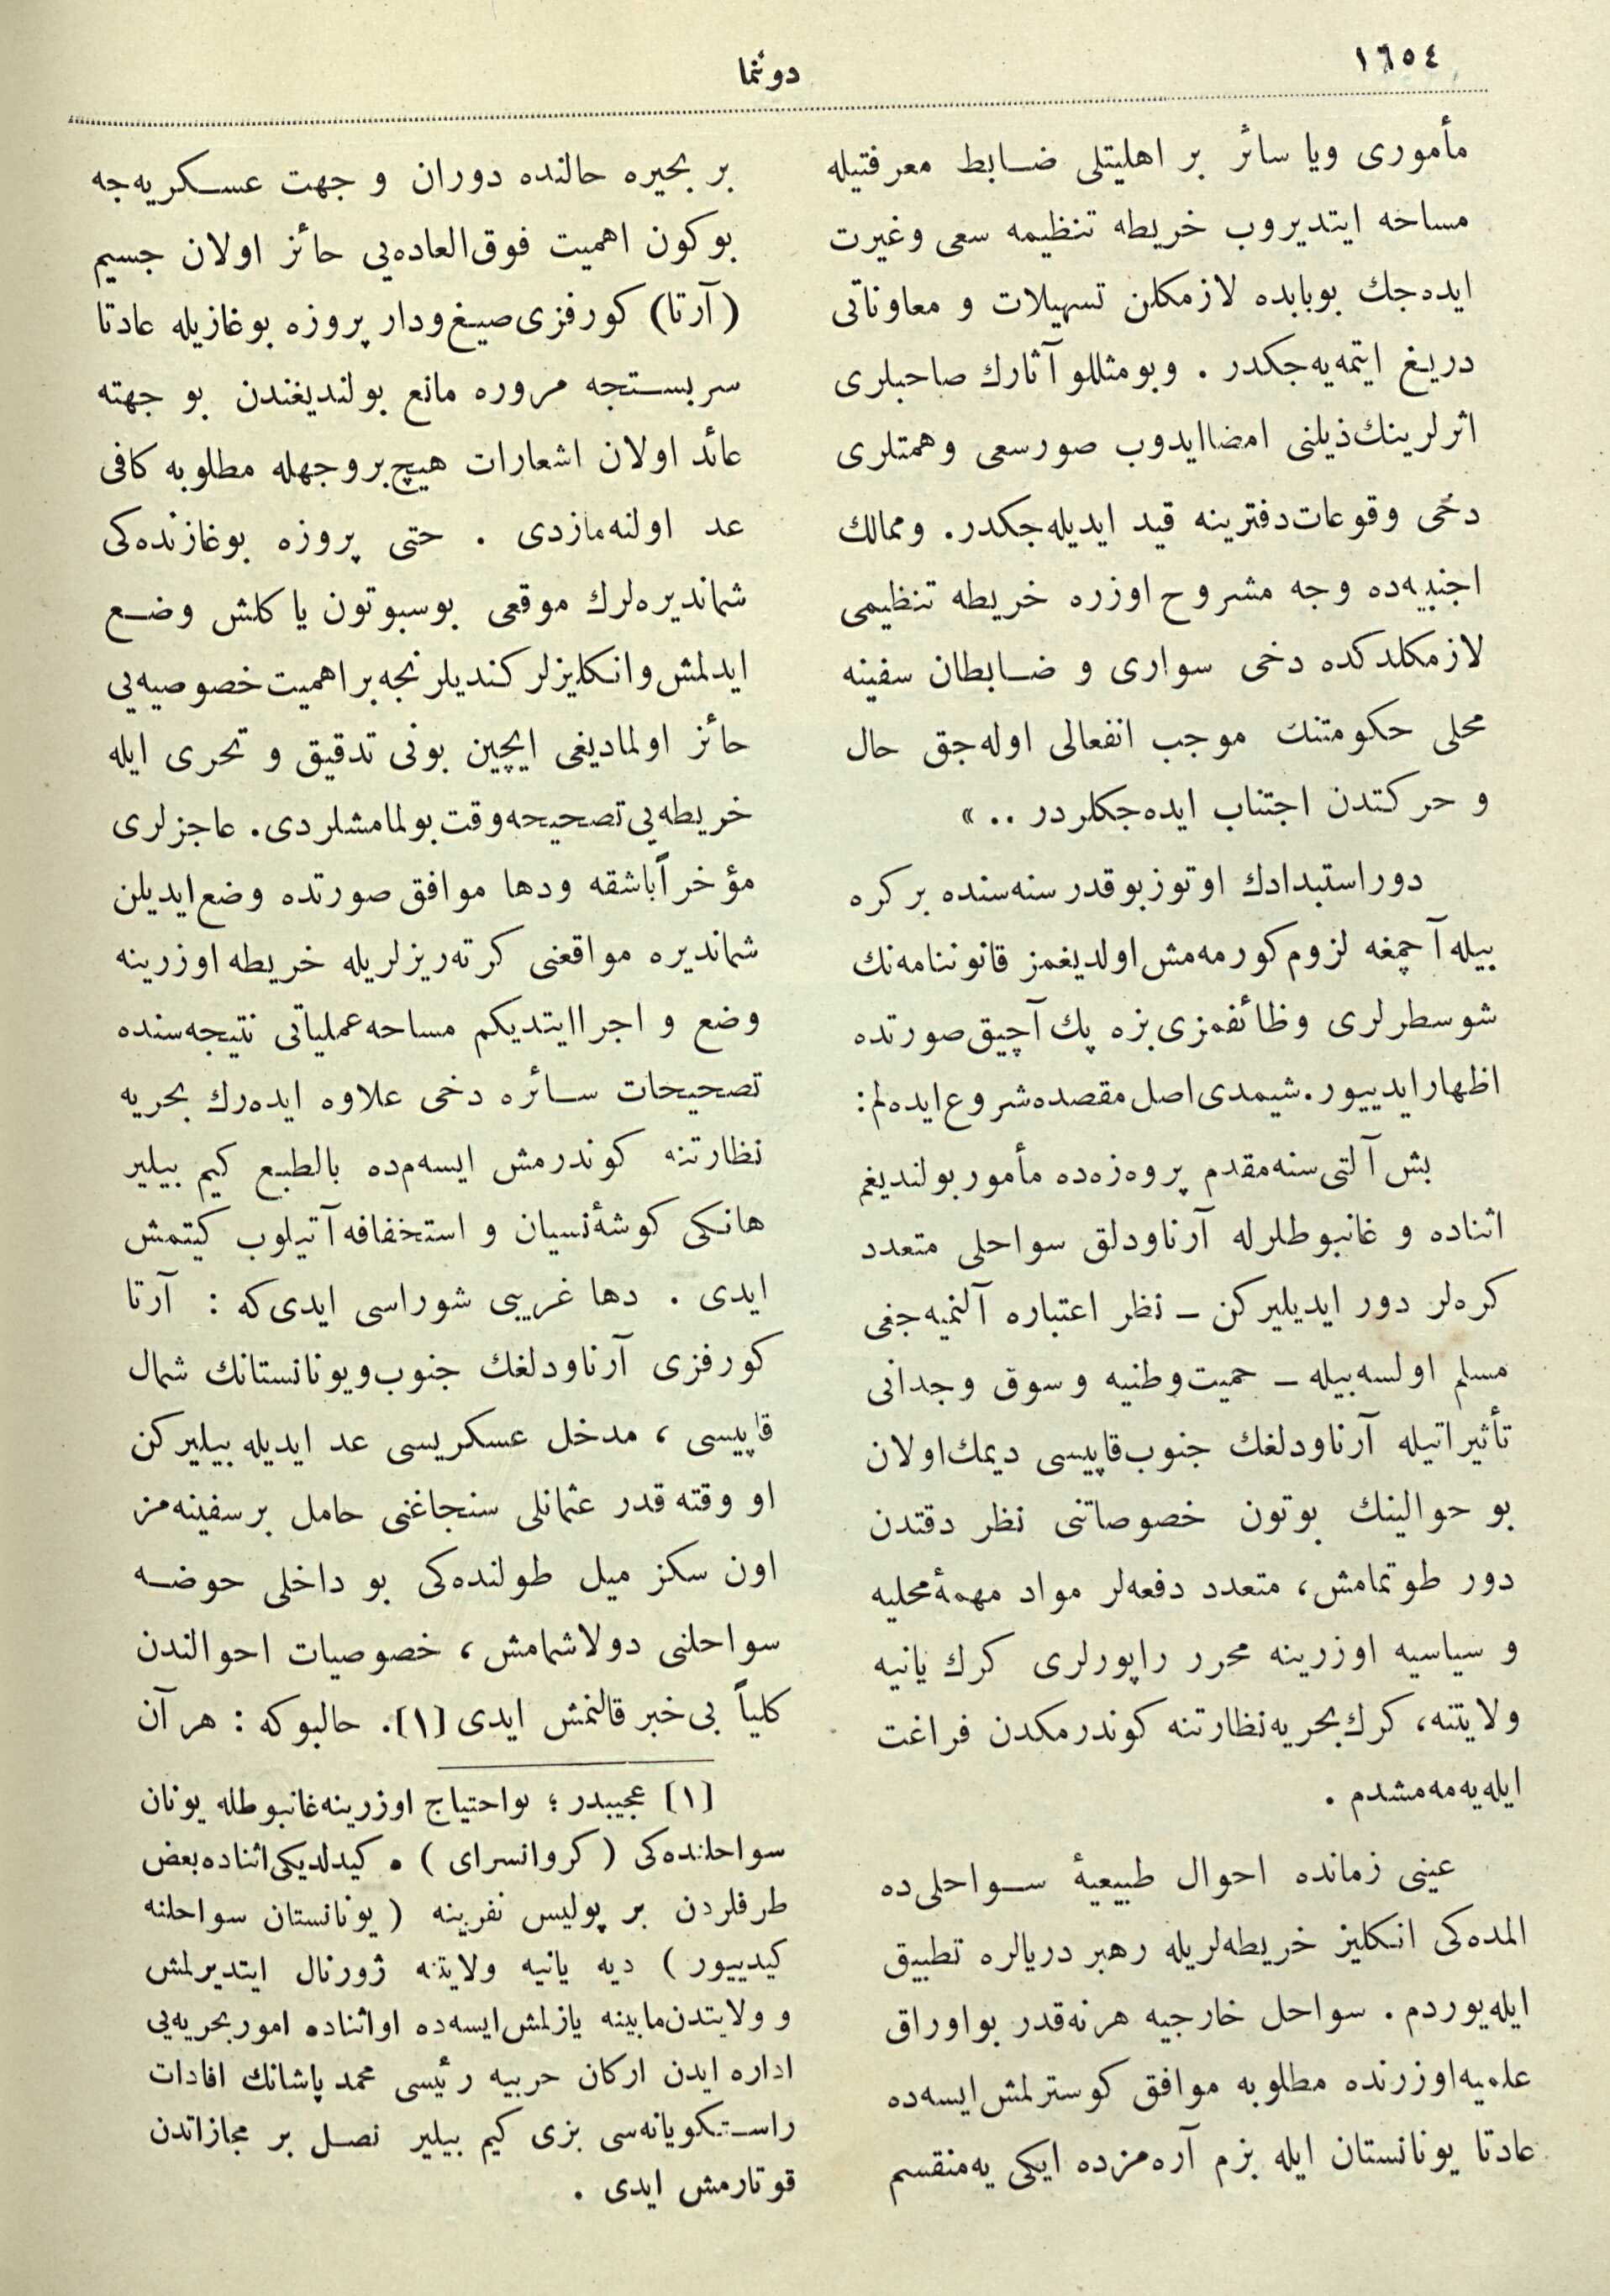 ١٦٥٤
دوننما
مأموری ویا سائر بر اهلیتلی ضابط معرفتیله
مساحه ایتدیروب خریطه تنظیمه سعی وغیرت
ایده‌جك بوبابده لازمکلن تسهیلات و معاوناتی
دریغ ایتمه‌یه‌جکدر . وبومثللو آثارك صاحبلری
اثرلرینك ذیلنی امضا ایدوب صورسعی وهمتلری
دخی وقوعات دفترینه قید ایدیله‌جکدر. وممالك
اجنبیه‌ده وجه مشروح اوزره خریطه تنظیمی
لازمکلدکده دخی سواری و ضابطان سفینه
محلی حکومتنك موجب انفعالی اوله‌جق حال
و حرکتدن اجتناب ایده‌جکلردر .. »
دور استبدادك اوتوز بوقدر سنه‌سنده بر کره
بیله آچمغه لزوم کورمه‌مش اولدیغمز قانوننامه‌نك
شو سطرلری وظائفمزی بزه پك آچیق صورتده
اظهار ایدییور. شیمدی اصل مقصده شروع ایده‌لم :
بش آلتی سنه مقدم پروه‌زه‌ده مأمور بولندیغم
اثناده و غانبوطلرله آرناودلق سواحلی متعدد
کره‌لر دور ایدیلیرکن ـ نظر اعتباره آلنمیه‌جغی
مسلم اولسه‌بیله ـ حمیت وطنیه وسوق وجدانی
تأثیراتیله آرناودلغك جنوب قاپیسی دیمك اولان
بو حوالینك بوتون خصوصاتنی نظر دقتدن
دور طوتمامش، متعدد دفعه‌لر مواد مهمهٔ محلیه
و سیاسیه اوزرینه محرر راپورلری کرك یانیه
ولایتنه، کرك بحریه نظارتنه کوندرمکدن فراغت
ایله‌یه‌مه‌مشدم .
عینی زمانده احوال طبیعیهٔ سواحلی‌ده
المده‌کی انکلیز خریطه‌لریله رهبر دریالره تطبیق
ایله‌یوردم . سواحل خارجیه هرنه‌قدر بواوراق
علمیه اوزرنده مطلوبه موافق کوسترلمش ایسه‌ده
عادتا یونانستان ایله بزم آره‌مزده ایکی‌یه منقسم
بر بحیره حالنده دوران و جهت عسکریه‌جه
بوکون اهمیت فوق‌العاده‌یی حائز اولان جسیم
(آرتا) کورفزی صیغ ودار پروزه بوغازیله عادتا
سربستجه مروره مانع بولندیغندن بو جهته
عائد اولان اشعارات هیچ بروجهله مطلوبه کافی
عد اولنه‌مازدی . حتی پروزه بوغازنده‌کی
شماندیره‌لرك موقعی بوسبوتون یاکلش وضع
ایدلمش وانکلیزلر کندیلرنجه بر اهمیت خصوصیه‌یی
حائز اولمادیغی ایچین بونی تدقیق و تحری ایله
خریطه‌یی تصحیحه وقت بولمامشلردی. عاجزلری
مؤخراً باشقه ودها موافق صورتده وضع ایدیلن
شماندیره مواقعنی کرته‌ریزلریله خریطه اوزرینه
وضع و اجرا ایتدیکم مساحه عملیاتی نتیجه‌سنده
تصحیحات سائره دخی علاوه ایده‌رك بحریه
نظارتنه کوندرمش ایسه‌م‌ده بالطبع کیم بیلیر
هانکی کوشهٔ نسیان و استخفافه آتیلوب کیتمش
ایدی . دها غریبی شوراسی ایدی‌که : آرتا
کورفزی آرناودلغك جنوب ویونانستانك شمال
قاپیسی ، مدخل عسکریسی عد ایدیله بیلیرکن
او وقته قدر عثمانلی سنجاغنی حامل بر سفینه‌مز
اون سکز میل طولنده‌کی بو داخلی حوضه
سواحلنی دولاشمامش ، خصوصیات احوالندن
کلیاً بی‌خبر قالنمش ایدی [١]. حالبوکه : هر آن
[١] عجیبدر ؛ بواحتیاج اوزرینه غانبوطله یونان
سواحلنده‌کی ( کروانسرای ) ه کیدلدیکی اثناده بعض
طرفلردن بر پولیس نفرینه ( یونانستان سواحلنه
کیدییور ) دیه یانیه ولایتنه ژورنال ایتدیرلمش
و ولایتدن مابینه یازلمش ایسه‌ده اواثناده امور بحریه‌یی
اداره ایدن ارکان حربیه رئیسی محمد پاشانك افادات
راستکویانه‌سی بزی کیم بیلیر نصل بر مجازاتدن
قوتارمش ایدی .